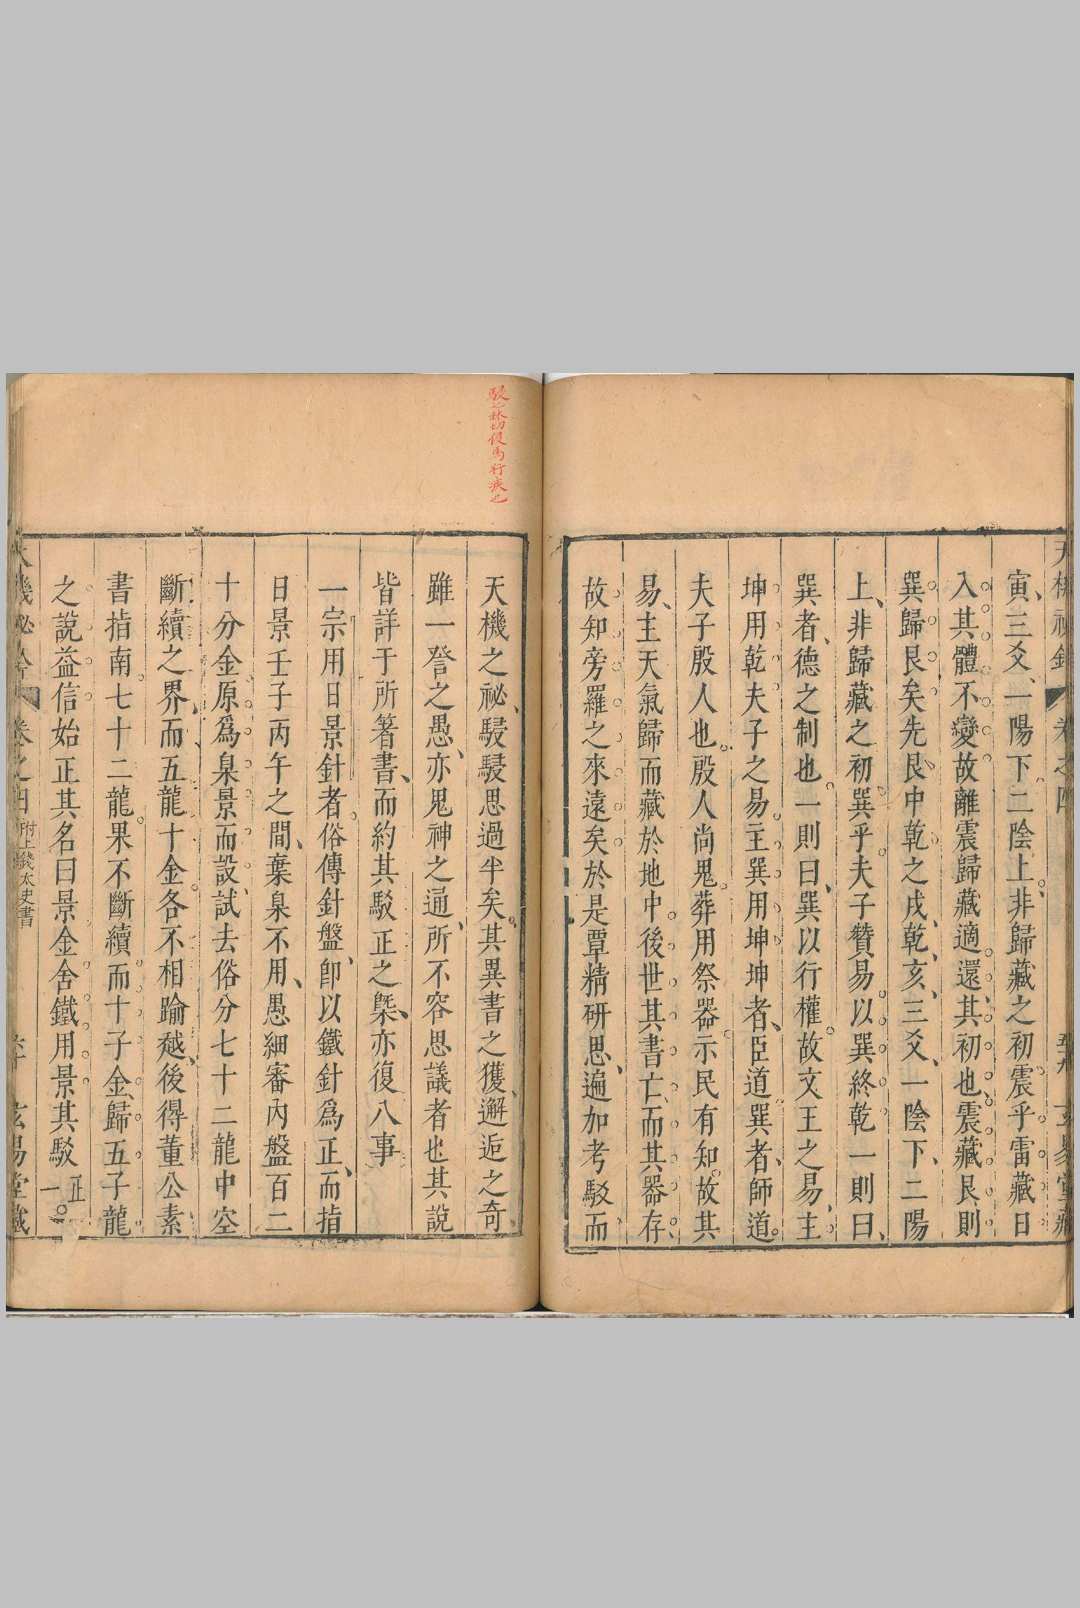 寅、三爻、一陽下二陰上、非歸藏之初震乎、雷藏日
入其體不變、故離震歸藏適還其初也、震藏艮則
巽歸艮矣、先艮中乾之戌、乾、亥、三爻、一陰下、二陽
上、非歸藏之初巽乎、夫子贊易、以巽終乾、一則曰、
巽者、德之制也、一則曰、巽以行權、故文王之易、主
坤用乾、夫子之易、主巽用坤、坤者、臣道、巽者、師道。
夫子殷人也、殷人尚鬼、葬用祭器、示民有知、故其
易、主天氣歸而藏於地中、後世其書亡、而其器存、
故知旁羅之來遠矣、於是覃精研思、遍加考駁、而
天機之祕、駸駸思過半矣。其異書之獲、邂逅之奇、
雖一謦之愚、亦鬼神之通、所不容思議者也、其說
皆詳于所著書、而約其駁正之槩、亦復八事
一宗用日景針者、俗傳針盤、卽以鐵針爲正、而指
日景壬子丙午之間、棄臬不用、愚細審內盤百二
十分金、原爲臬景而設、試去俗分七十二龍中空
斷續之界、而五龍十金、各不相踰越、後得董公素
書指南七十二龍、果不斷續、而十子金、歸五子龍
之說益信、始正其名曰景金、舍鐵用景、其駁正一。
卷之四
附上錢太史書
五十九
玄易堂藏